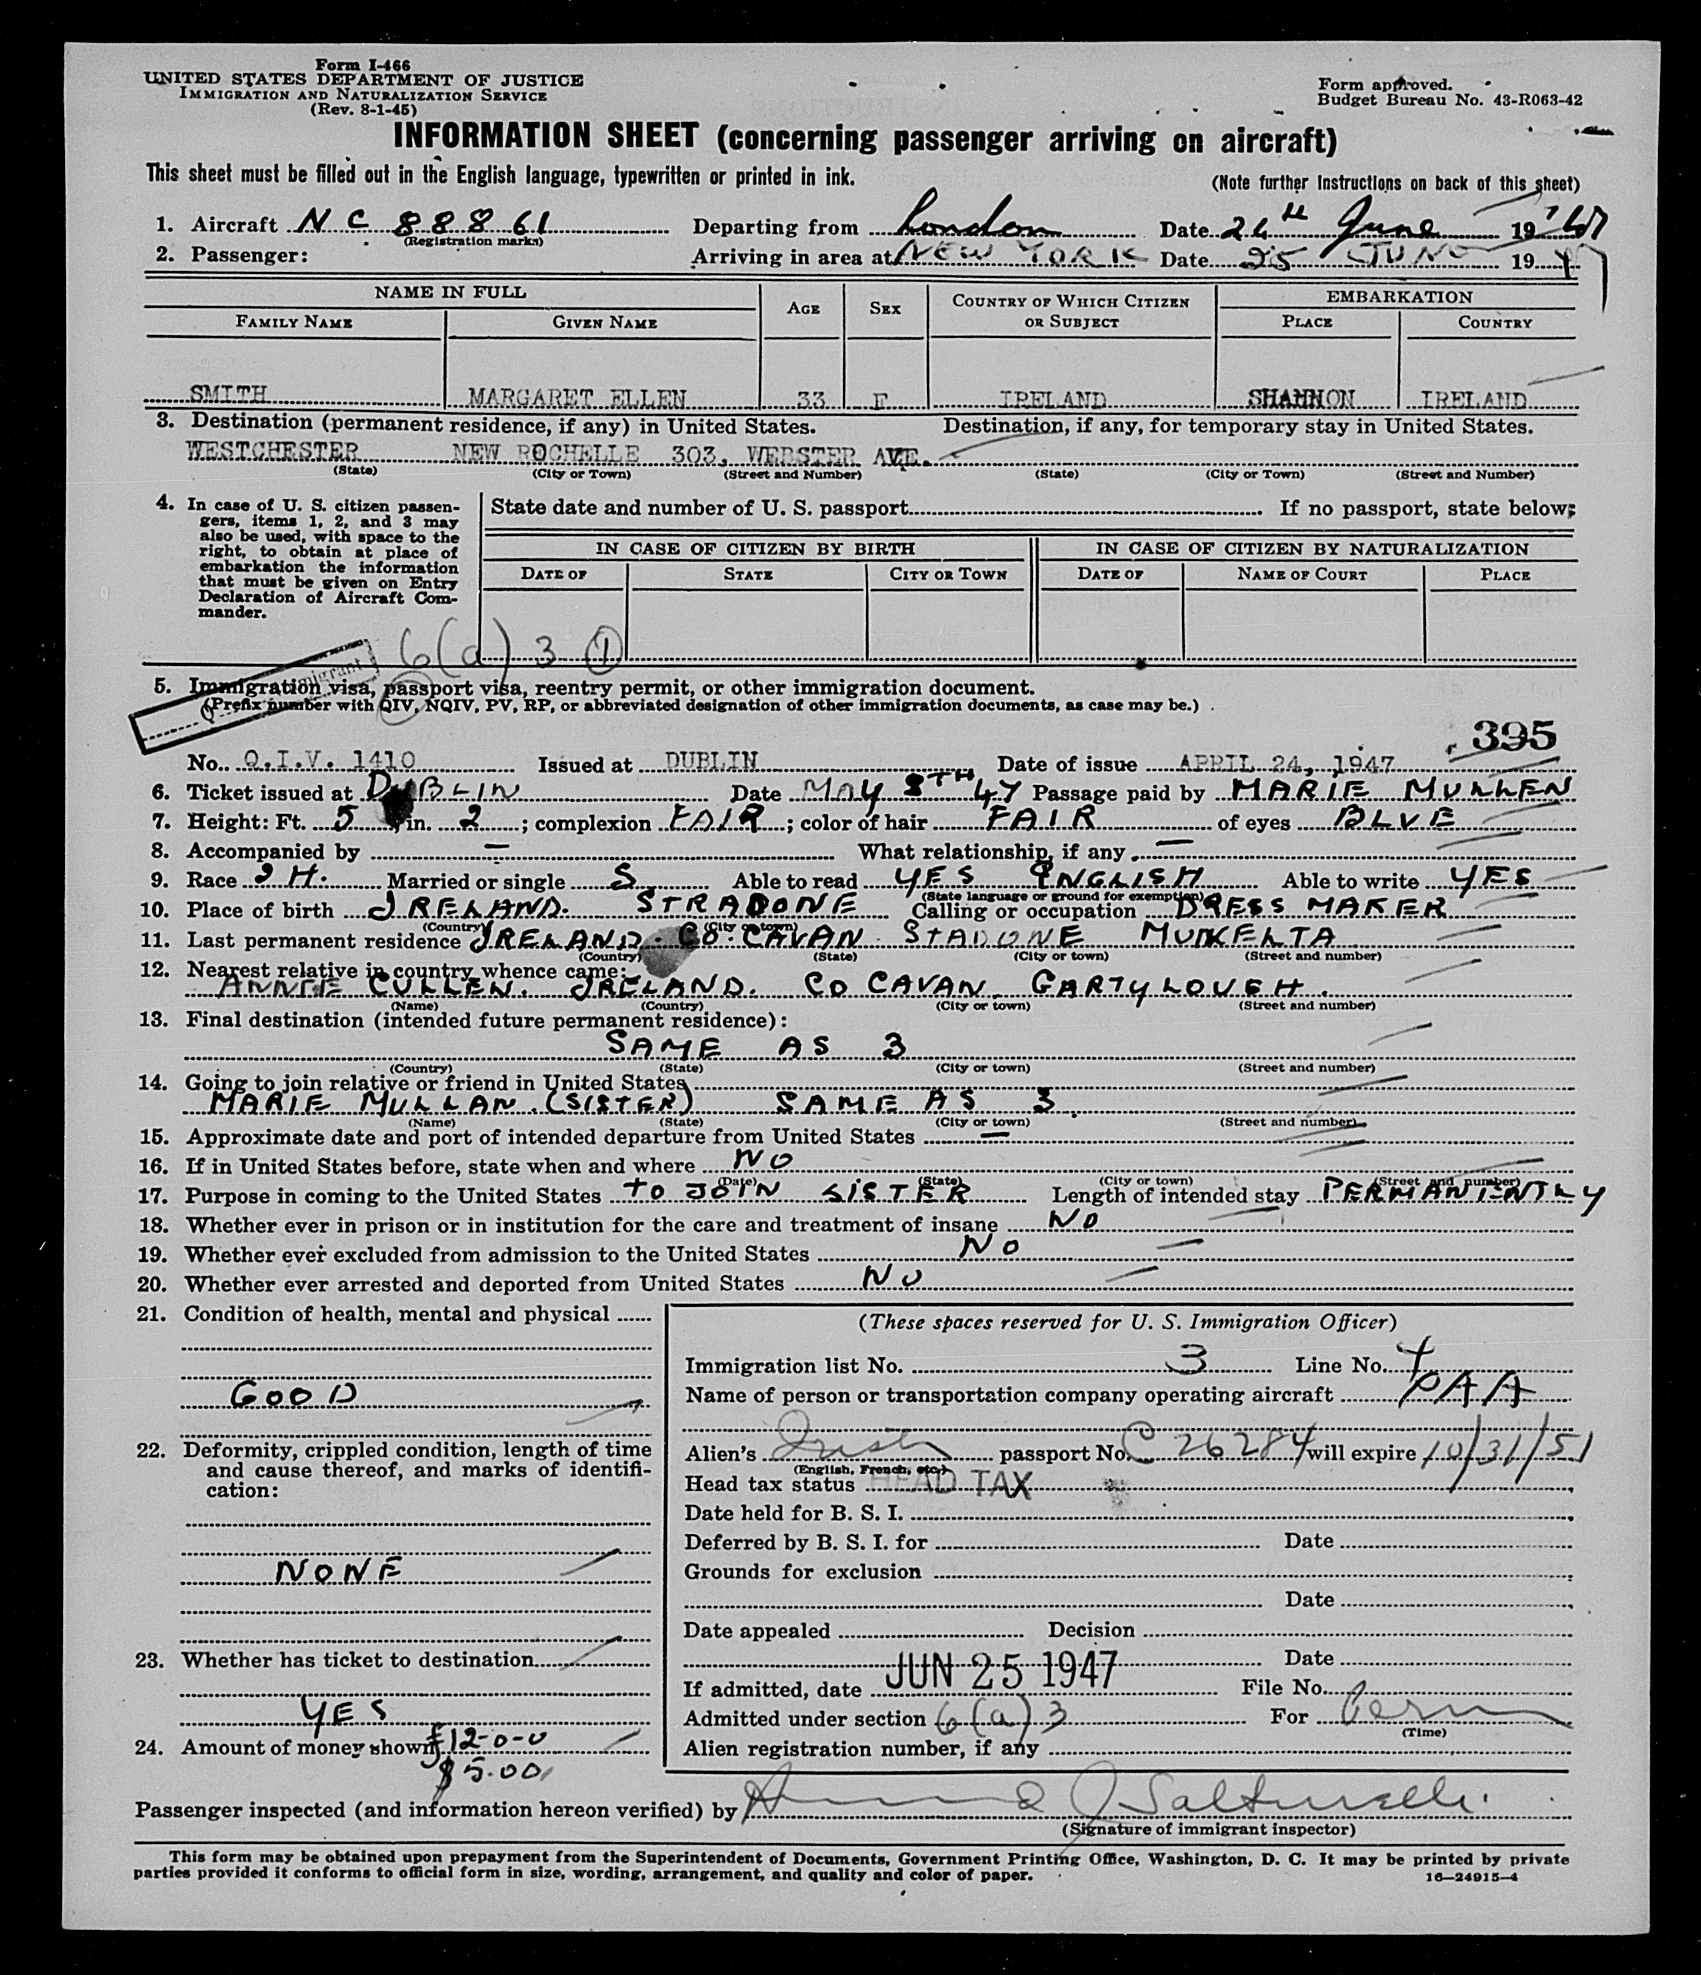 Form I-466
UNITED STATES DEPARTMENT OF JUSTICE
IMMIGRATION AND NATURALIZATION SERVICE
(Rev. 8-1-45)
Form approved.
Budget Bureau No. 43-R063-42
INFORMATION SHEET (concerning passenger arriving on aircraft)
This sheet must be filled out in the English language, typewritten or printed in ink.
(Note further Instructions on back of this sheet)
1. Aircraft NC 88861 Departing from London Date 24th June 1947
(Registration marks)
2. Passenger: Arriving in area at NEW YORK Date 25 JUNE 1947
NAME IN FULL AGE SEX COUNTRY OF WHICH CITIZEN OR SUBJECT EMBARKATION
FAMILY NAME GIVEN NAME PLACE COUNTRY
SMITH MARGARET ELLEN 33 F IRELAND SHANNON IRELAND
3. Destination (permanent residence, if any) in United States. Destination, if any, for temporary stay in United States.
WESTCHESTER NEW ROCHELLE 303, WEBSTER AVE.
(State) (City or Town) (Street and Number) (State) (City or Town) (Street and Number)
4. In case of U. S. citizen passengers, items 1, 2, and 3 may also be used, with space to the right, to obtain at place of embarkation the information that must be given on Entry Declaration of Aircraft Commander.
State date and number of U. S. passport If no passport, state below:
IN CASE OF CITIZEN BY BIRTH IN CASE OF CITIZEN BY NATURALIZATION
DATE OF STATE CITY OR TOWN DATE OF NAME OF COURT PLACE
6(a) 3 1
5. Immigration visa, passport visa, reentry permit, or other immigration document.
(Prefix number with QIV, NQIV, PV, RP, or abbreviated designation of other immigration documents, as case may be.)
395
No. Q.I.V. 1410 Issued at DUBLIN Date of issue APRIL 24, 1947
6. Ticket issued at DUBLIN Date MAY 8TH 47 Passage paid by MARIE MULLEN
7. Height: Ft. 5 in. 2; complexion FAIR; color of hair FAIR of eyes BLUE
8. Accompanied by — What relationship, if any —
9. Race IH. Married or single S Able to read YES ENGLISH Able to write YES
(State language or ground for exemption)
10. Place of birth IRELAND. STRADONE Calling or occupation DRESS MAKER
(Country) (City or town)
11. Last permanent residence IRELAND. CO. CAVAN STADONE MUKELTA
(Country) (State) (City or town) (Street and number)
12. Nearest relative in country whence came:
ANNIE CULLEN. IRELAND. CO CAVAN. GARTYLOUGH.
(Name) (Country) (City or town) (Street and number)
13. Final destination (intended future permanent residence):
SAME AS 3
(Country) (State) (City or town) (Street and number)
14. Going to join relative or friend in United States
MARIE MULLAN. (SISTER) SAME AS 3.
(Name) (State) (City or town) (Street and number)
15. Approximate date and port of intended departure from United States —
16. If in United States before, state when and where NO
(Date) (State) (City or town) (Street and number)
17. Purpose in coming to the United States TO JOIN SISTER Length of intended stay PERMANIENTLY
18. Whether ever in prison or in institution for the care and treatment of insane NO
19. Whether ever excluded from admission to the United States NO
20. Whether ever arrested and deported from United States NO
21. Condition of health, mental and physical
GOOD
22. Deformity, crippled condition, length of time and cause thereof, and marks of identification:
NONE
23. Whether has ticket to destination
YES
24. Amount of money shown £12-0-0
$5.00
(These spaces reserved for U. S. Immigration Officer)
Immigration list No. 3 Line No. 4
Name of person or transportation company operating aircraft PAA
Alien's Irish passport No. C 26284 will expire 10/31/51
(English, French, etc.)
Head tax status HEAD TAX
Date held for B. S. I.
Deferred by B. S. I. for Date
Grounds for exclusion
Date
Date appealed Decision
Date
If admitted, date JUN 25 1947 File No.
Admitted under section 6(a)3 For Perm
(Time)
Alien registration number, if any
Passenger inspected (and information hereon verified) by
(Signature of immigrant inspector)
This form may be obtained upon prepayment from the Superintendent of Documents, Government Printing Office, Washington, D. C. It may be printed by private
parties provided it conforms to official form in size, wording, arrangement, and quality and color of paper.
16—24915-4